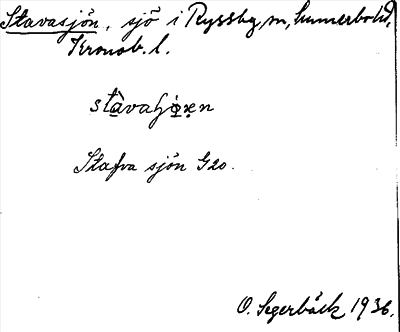 Stavasjön, sjö i Ryssby sn, Sunnerbo hd,
Kronob. l.
Stafva sjön G20.
O. Segerbäck 1936.